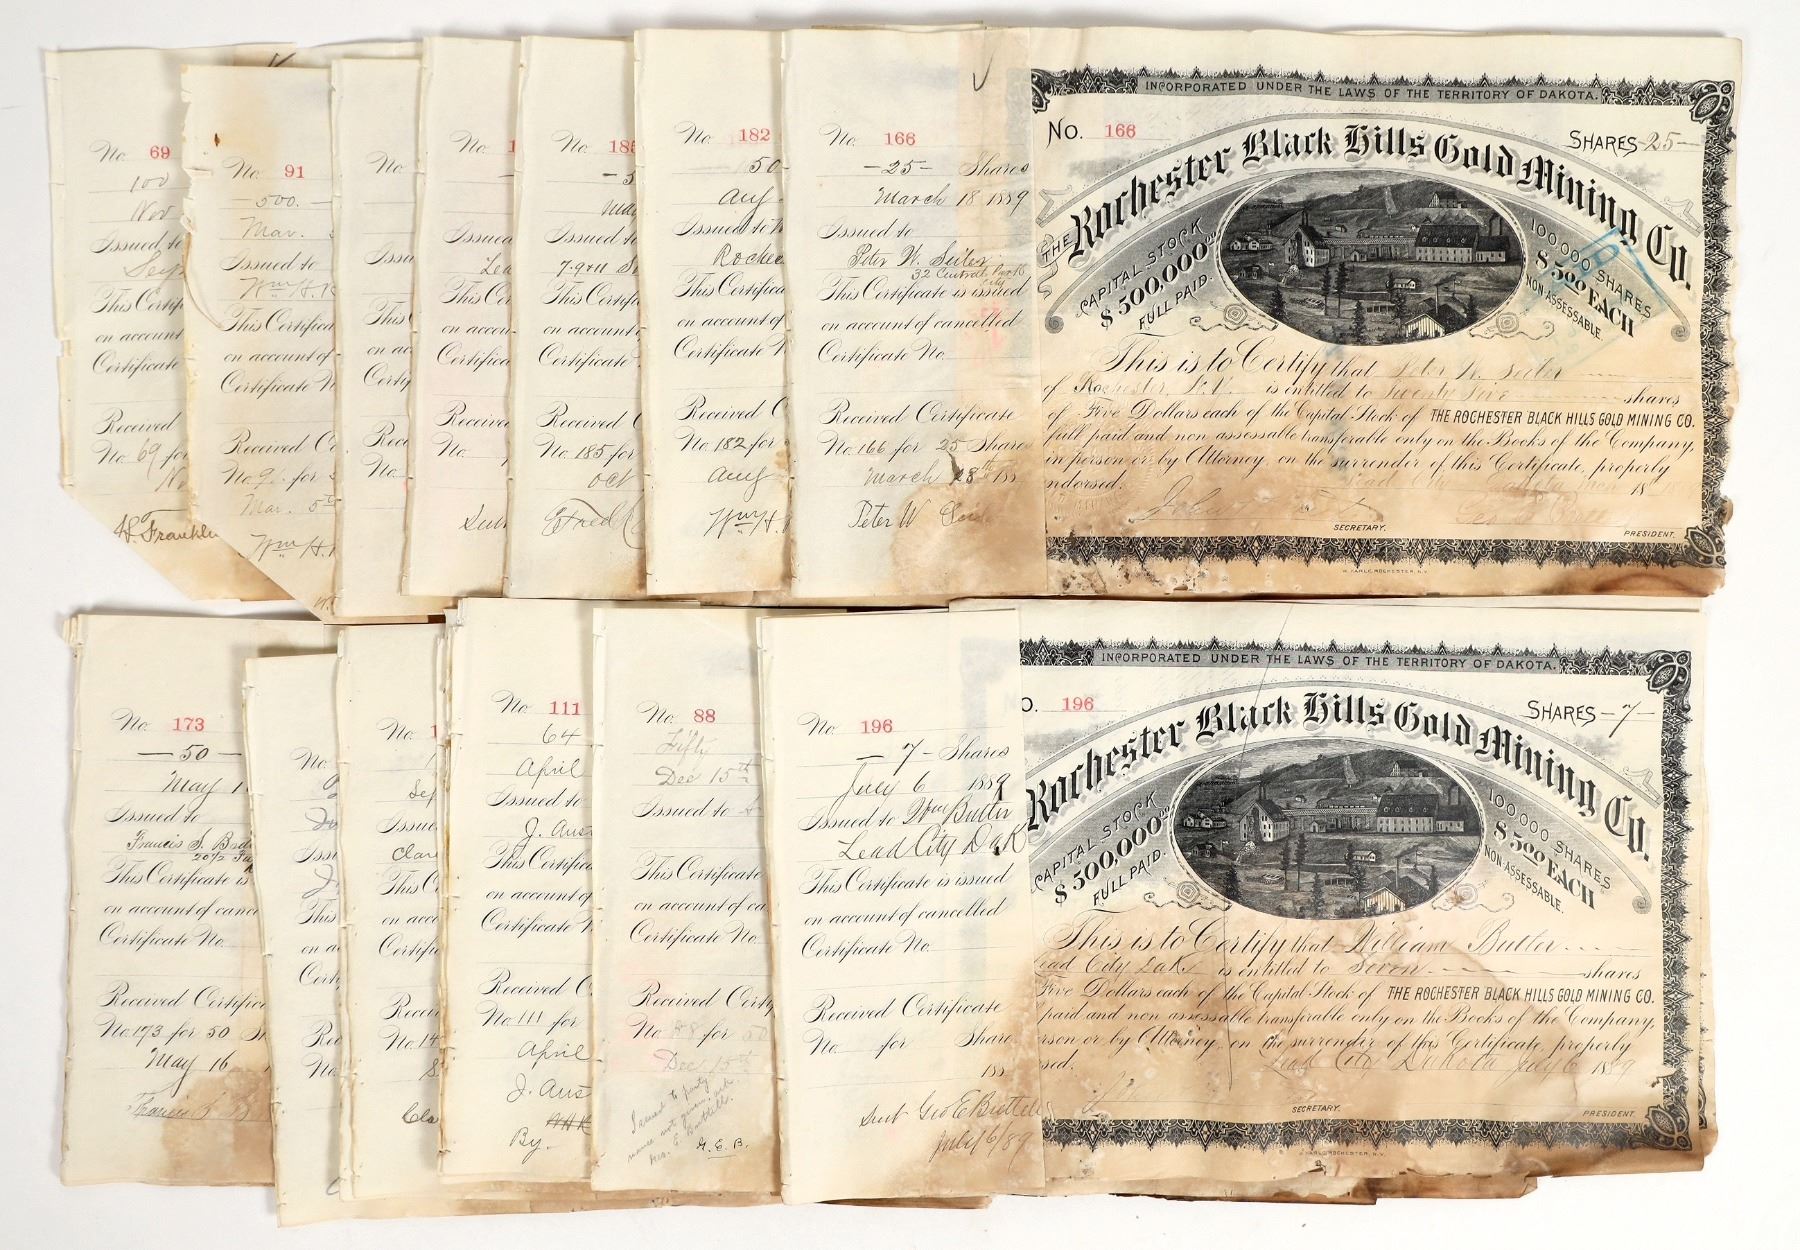 No. 69
100
Nov
Issued to
This Certificate
on account
Certificate
Received
No. 69 for
H. Franklin
No. 91
500.
Mar.
Issued to
Wm H.
This Certifica
on account of
Certificate N
Received C
No. 91 for
Mar. 5th
Wm H.
No
Issu
This
on ac
Certif
Rece
No.
No. 1
Issued
Lea
This Cer
on accou
Certifica
Received
No.
No. 185
Issued to
This Certific
on account
Certificate
Received
No. 185 for
Oct
Fred
No. 182
50
Aug
Issued to
Roches
This Certifica
on account of
Certificate N
Received C
No. 182 for
Aug
Wm H.
No. 166
-25- Shares
March 18 1889
Issued to
Peter W. Seiler
32 Central Park
City
This Certificate is issued
on account of cancelled
Certificate No.
Received Certificate
No. 166 for 25 Share
March 18th 188
Peter W Seil
INCORPORATED UNDER THE LAWS OF THE TERRITORY OF DAKOTA.
No. 166
SHARES -25-
THE Rochester Black Hills Gold Mining Co.
CAPITAL STOCK
$500,000.00
FULL PAID.
100,000 SHARES
$5.00 EACH
NON-ASSESSABLE.
This is to Certify that Peter W. Seiler
of Rochester N.Y. is entitled to Twenty Five shares
of Five Dollars each of the Capital Stock of THE ROCHESTER BLACK HILLS GOLD MINING CO.
full paid and non assessable transferable only on the Books of the Company,
in person or by Attorney, on the surrender of this Certificate, properly
endorsed. Lead City Dakota Mch 18
SECRETARY.
PRESIDENT.
No. 173
-50-
May 1
Issued to
Francis S.
This Certificate is
on account of canc
Certificate No.
Received Certifica
No. 173 for 50 Sh
May 16
Francis S.
No.
Issu
This
on a
Cert
Rec
No.
No. 1
Sep
Issue
Clar
This C
on acco
Certif
Receiv
No. 14
Cla
No. 111
64
April
Issued to
J. Aus
This Certifica
on account
Certificate
Received C
No. 111 for
April
J. Aus
By.
No. 88
Fifty
Dec 15th
Issued to
This Certificate
on account of ca
Certificate No.
Received Certi
No. 88 for 50
Dec 15th
Issued to party
name not given: ask
Geo. E. Buttell.
G.E.B.
No. 196
-7- Shares
July 6 1889
Issued to Wm Butler
Lead City Dak
This Certificate is issued
on account of cancelled
Certificate No.
Received Certificate
No. for Share
188
Sent Geo E Buttell
July 16/89
INCORPORATED UNDER THE LAWS OF THE TERRITORY OF DAKOTA.
O. 196
SHARES -7-
Rochester Black Hills Gold Mining Co.
CAPITAL STOCK
$500,000.00
FULL PAID.
100,000 SHARES
$5.00 EACH
NON-ASSESSABLE.
This is to Certify that William Butler
Lead City Dak. is entitled to Seven shares
Five Dollars each of the Capital Stock of THE ROCHESTER BLACK HILLS GOLD MINING CO.
paid and non assessable transferable only on the Books of the Company,
erson or by Attorney, on the surrender of this Certificate, properly
rsed. Lead City Dakota July 6 1889
SECRETARY.
PRESIDENT.